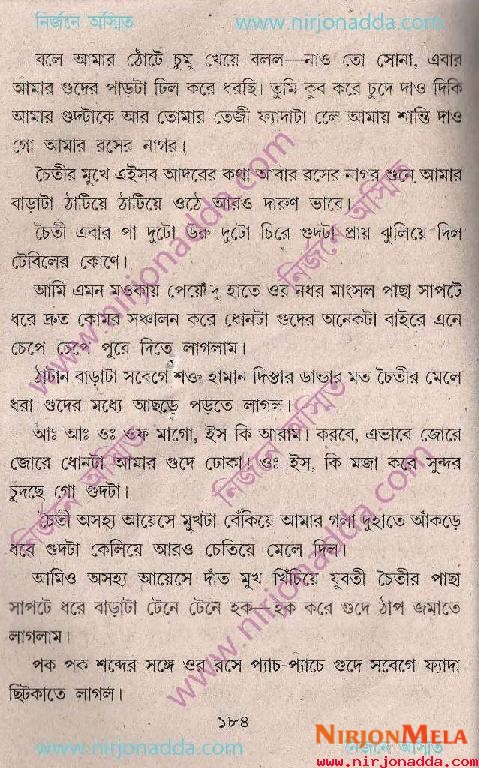 নির্জনে অস্মিত www.nirjonadda.com
বলে আমার ঠোটে চুমু খেয়ে বলল—নাও তো সোনা, এবার
আমার গুদের পাড়টা ঢিল করে ধরছি। তুমি কুব করে চুদে দাও দিকি
আমার গুদটাকে আর তোমার তেজী ফ্যাদাটা ঢেলে আমায় শান্তি দাও
গো আমার রসের নাগর।
চৈতীর মুখে এইসব আদরের কথা আবার রসের নাগর শুনে আমার
বাড়াটা ঠাটিয়ে ঠাটিয়ে ওঠে আরও দারুণ ভাবে।
চৈতী এবার পা দুটো উরু দুটো চিরে গুদটা প্রায় ঝুলিয়ে দিল
টেবিলের কোণে।
আমি এমন মওকায় পেয়ে দু হাতে ওর নধর মাংসল পাছা সাপটে
ধরে দ্রুত কোমর সঞ্চালন করে ধোনটা গুদের অনেকটা বাইরে এনে
চেপে পুরে দিতে লাগলাম।
ঠাটান বাড়াটা সবেগে শক্ত হামান দিস্তার ডান্ডার মত চৈতীর মেলে
ধরা গুদের মধ্যে আছড়ে পড়তে লাগল।
আঃ আঃ ওঃ ওফ মাগো, ইস কি আরাম। করবে, এভাবে জোরে
জোরে ধোনটা আমার গুদে ঢোকা। ওঃ ইস, কি মজা করে সুন্দর
চুদছে গো গুদটা।
চৈতী অসহ্য আয়েসে মুখটা বেঁকিয়ে আমার গলা দুহাতে আঁকড়ে
ধরে গুদটা কেলিয়ে আরও চেতিয়ে মেলে দিল।
আমিও অসহ্য আয়েসে দাঁত মুখ খিঁচিয়ে যুবতী চৈতীর পাছা
সাপটে ধরে বাড়াটা টেনে টেনে হক—হক করে গুদে ঠাপ জমাতে
লাগলাম।
পক পক শব্দের সঙ্গে ওর রসে প্যাচ-প্যাচে গুদে সবেগে ফ্যাদা
ছিটকাতে লাগল।
১৮৪
www.nirjonadda.com নির্জনে অস্মিত
NIRJONMELA
www.nirjonadda.com
নির্জনে অস্মিত
www.nirjonadda.com
নির্জনে অস্মিত
নির্জনে অস্মিত
www.nirjonadda.com